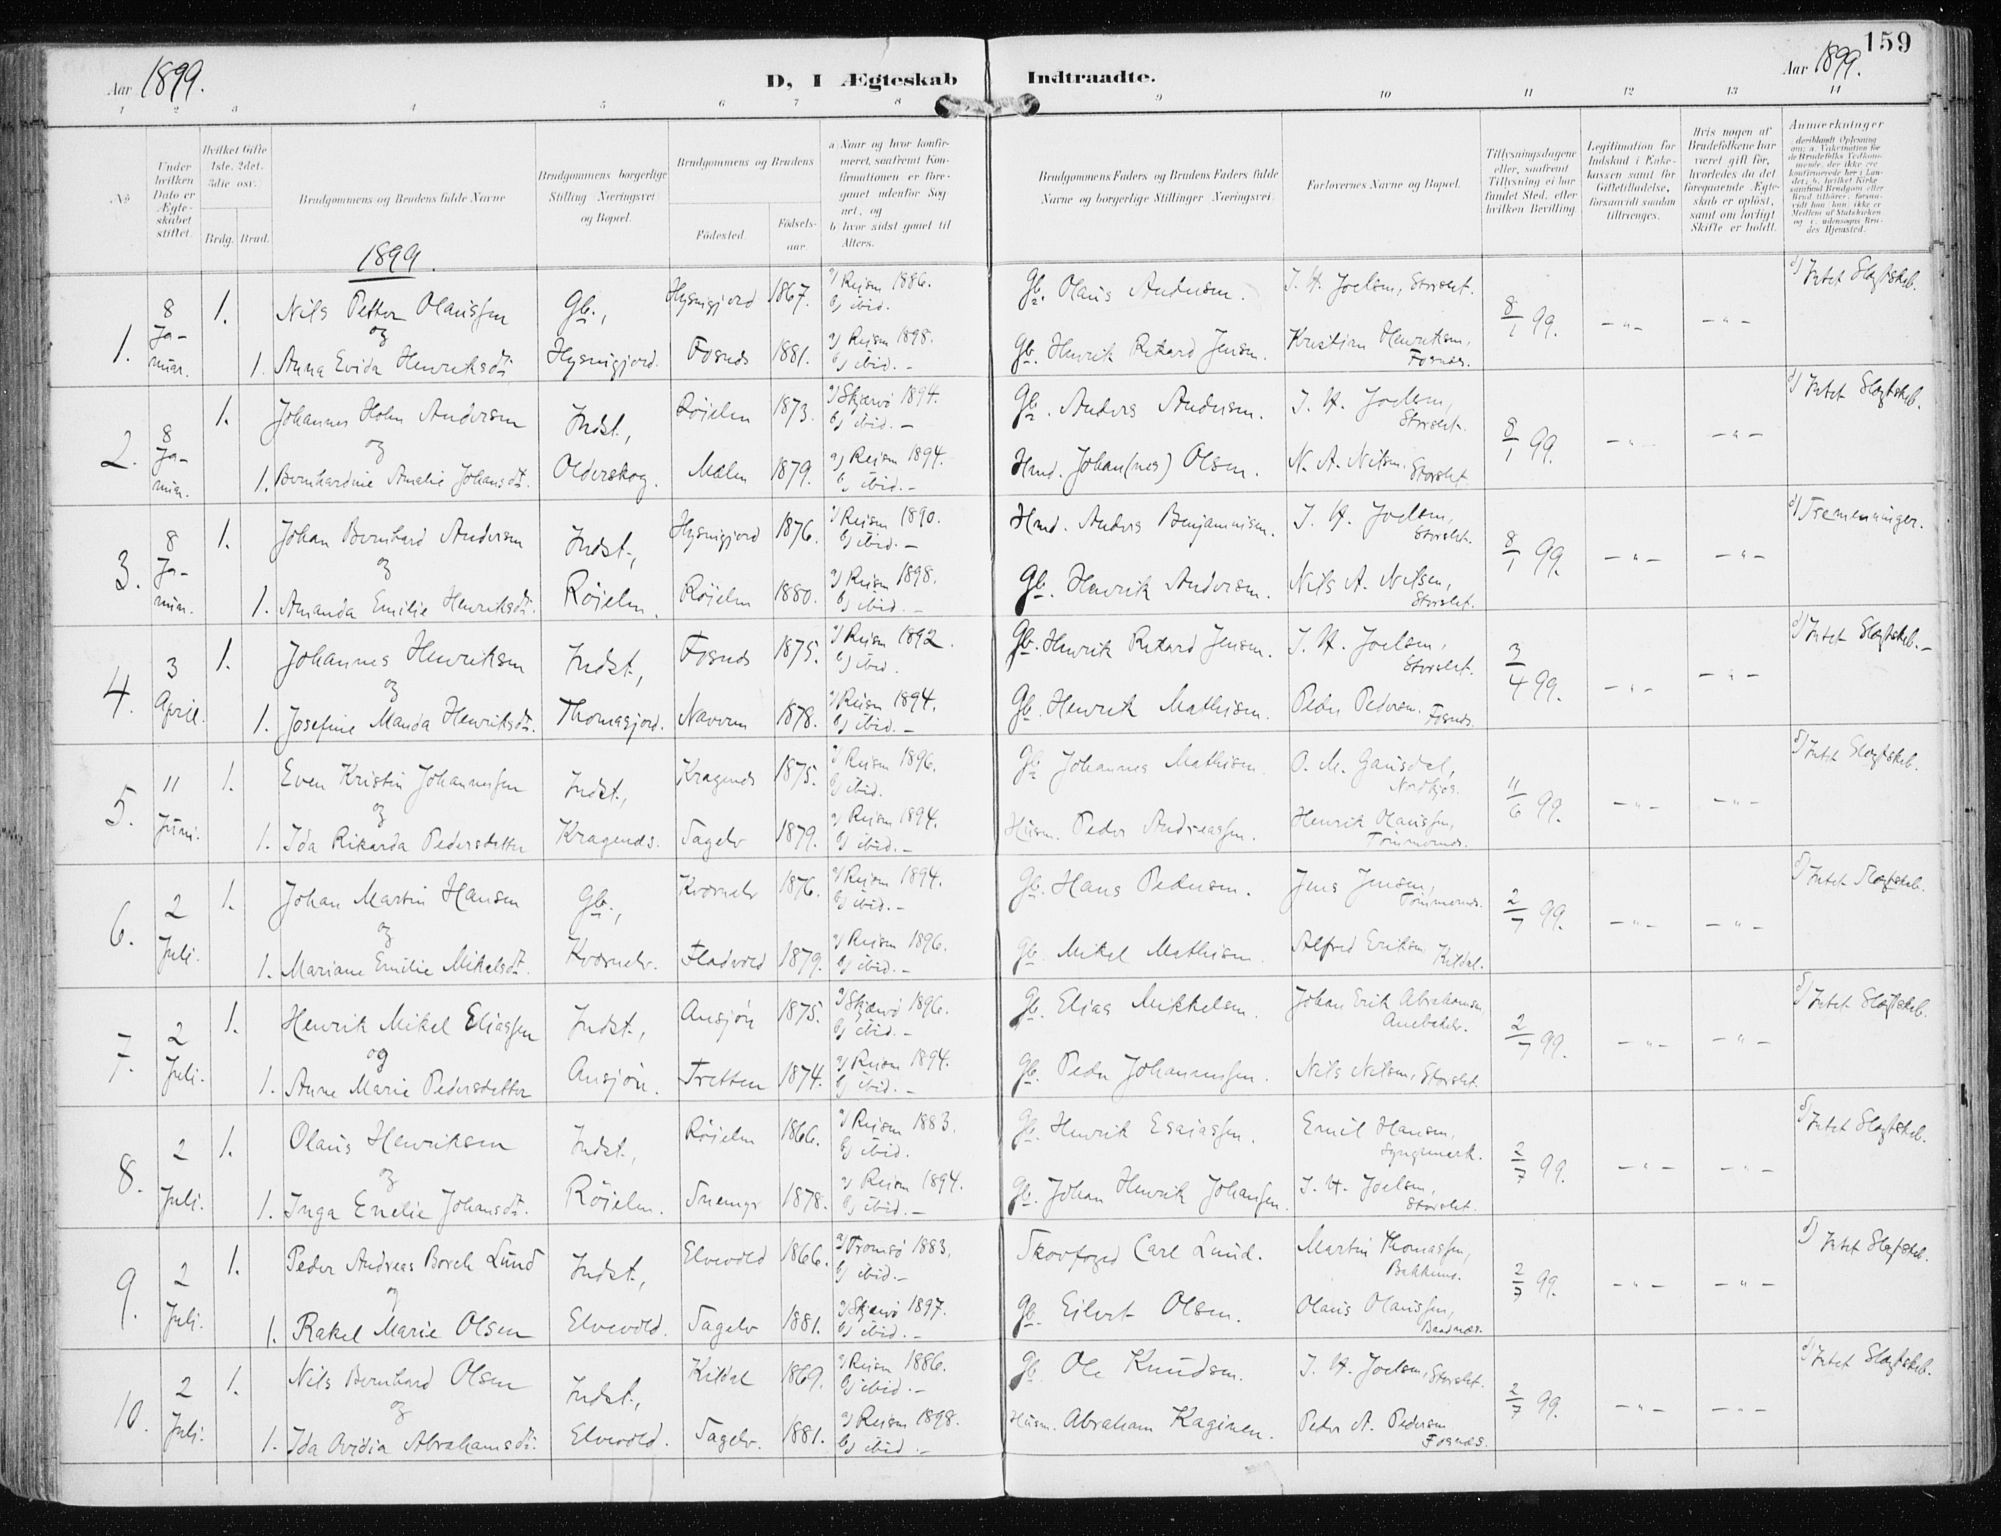 159
Aar 1899.
D, I Ægteskab Indtraadte.
Aar 1899.
1 2 3 4 5 6 7 8 9 10 11 12 13 14
No
Under hvilken Dato er Ægteskabet stiftet.
Hvilket Gifte 1ste, 2det, 3die osv.
Brdg. Brud.
Brudgommens og Brudens fulde Navne
Brudgommens borgerlige Stilling Næringsvei og Bopæl.
Brudgommens og Brudens
Fødested.
Fødselsaar.
a Naar og hvor konfirmeret, saafremt Konfirmationen er foregaaet udenfor Sognet, og
b hvor sidst gaaet til Alters.
Brudgommens Faders og Brudens Faders fulde Navne og borgerlige Stillinger Næringsvei.
Forlovernes Navne og Bopæl.
Tillysningsdagene eller, saafremt Tillysning ei har fundet Sted, efter hvilken Bevilling
Legitimation for Indskud i Enkekassen samt for Giftetilladelse, forsaavidt saadan tiltrænges.
Hvis nogen af Brudefolkene har været gift før, hvorledes da det foregaaende Ægteskab er opløst, samt om lovligt Skifte er holdt.
Anmærkninger
1899.
1. 8 Januar. 1. Nils Petter Olaussen Gb., Hysingjord 1867. a) Reisen 1886. b) ibid. Gb. Olaus Andersen. J. H. Joelsen, Storslet. 8/1 99. —„— —„— Intet Slægtskab.
og
1. Anna Evida Henriksdt. Hysingjord. Fosnes 1881. a) Reisen 1898. b) ibid.— Gb. Henrik Rikard Jensen. Kristian Henriksen, Fosnæs.
2. 8 Januar. 1. Johannes Holm Andersen Indst., Røielen 1873. a) Skjærvø 1894. b) ibid.— Gb. Anders Andersen. J. H. Joelsen, Storslet. 8/1 99. —„— —„— Intet Slægtskab.
og
1. Bernhardine Amalie Johansdt. Olderskog. Mælen 1879. a) Reisen 1894. b) ibid.— Hmd. Johan(nes) Olsen. N. A. Nilsen, Storslet
3. 8 Januar. 1. Johan Bernhard Andersen Indst., Hysingjord 1876. a) Reisen 1890. b) ibid.— Hmd. Anders Benjaminsen. J. H. Joelsen, Storslet. 8/1 99. —„— —„— Tremenninger.
og
1. Amanda Emilie Henriksdt. Røielen. Røielen 1880. a) Reisen 1898. b) ibid.— Gb. Henrik Andersen. Nils A. Nilsen, Storslet.
4. 3 April. 1. Johannes Henriksen Indst., Fosnes 1875. a) Reisen 1892. b) ibid. Gb. Henrik Rikard Jensen. J. H. Joelsen, Storslet. 3/4 99. —„— —„— Intet Slægtskab.—
og
1. Josefine Manda Henriksdt. Thomasjord. Navren 1878. a) Reisen 1894. b) ibid.— Gb. Henrik Mathisen. Peder Pedersen. Fosnes.
5. 11 Juni. 1. Even Kristin Johannessen Indst., Kragenes 1875. a) Reisen 1896. b) ibid. Gb. Johannes Mathisen. O. M. Gausdal, Nordkjos. 11/6 99. —„— —„— Intet Slægtskab.
og
1. Ida Rikarda Pedersdatter Kragenes. Sagelv 1879. a) Reisen 1894. b) ibid.— Husm. Peder Andreassen. Henrik Olaussen, Tømmernes.
6. 2 Juli. 1. Johan Martin Hansen Gb., Kvænelv 1876. a) Reisen 1894. b) ibid.— Gb. Hans Pedersen. Jens Jensen, Tømmernes. 2/7 99. —„— —„— Intet Slægtskab.
og
1. Mariane Emilie Mikelsdt. Kvænelv. Fladvold 1879. a) Reisen 1896. b) ibid.— Gb. Mikel Mathisen. Alfred Eriksen, Kildal.
7. 2 Juli. 1. Henrik Mikel Eliassen Indst., Ansjøn 1875. a) Skjærvø 1896. b) ibid.— Gb. Elias Mikkelsen. Johan Erik Abrahamsen 2/7 99. —„— —„— Intet Slægtskab.
og
1. Anne Marie Pedersdatter Ansjøn. Fretten 1874. a) Reisen 1894. b) ibid.— Gb. Peder Johannessen. Nils Nilsen, Storslet.
8. 2 Juli. 1. Olaus Henriksen Indst., Røielen 1866. a) Reisen 1883. b) ibid. Gb. Henrik Esaiassen. Emil Hansen, 2/7 99. —„— —„— Intet Slægtskab.
og
1. Inga Enelie Johansdt. Røielen. Snemyr 1878. a) Reisen 1894. b) ibid.— Gb. Johan Henrik Johansen. J. H. Joelsen, Storslet.
9. 2 Juli. 1. Peder Andreas Borch Lund Indst., Elvevold 1866. a) Tromsø 1883. b) ibid.— Skovfoged Carl Lund. Martin Thomassen, 2/7 99. —„— —„— Intet Slægtskab.
og
1. Rakel Marie Olsen Elvevold. Sagelv 1881. a) Skjærvø 1897. b) ibid.— Gb. Eilert Olsen. Olaus Olaussen, Baadnæs.
10. 2 Juli. 1. Nils Bernhard Olsen Indst., Kildal 1869. a) Reisen 1886. b) ibid.— Gb. Ole Knudsen. J. H. Joelsen, Storslet. 2/7 99. —„— —„— Intet Slægtskab.
og
1. Ida Ovidia Abrahamsdt. Elvevold. Sagelv. 1881. a) Reisen 1898. b) ibid.— Husm. Abraham Kaginen. Peder A. Pedersen Fosnæs.